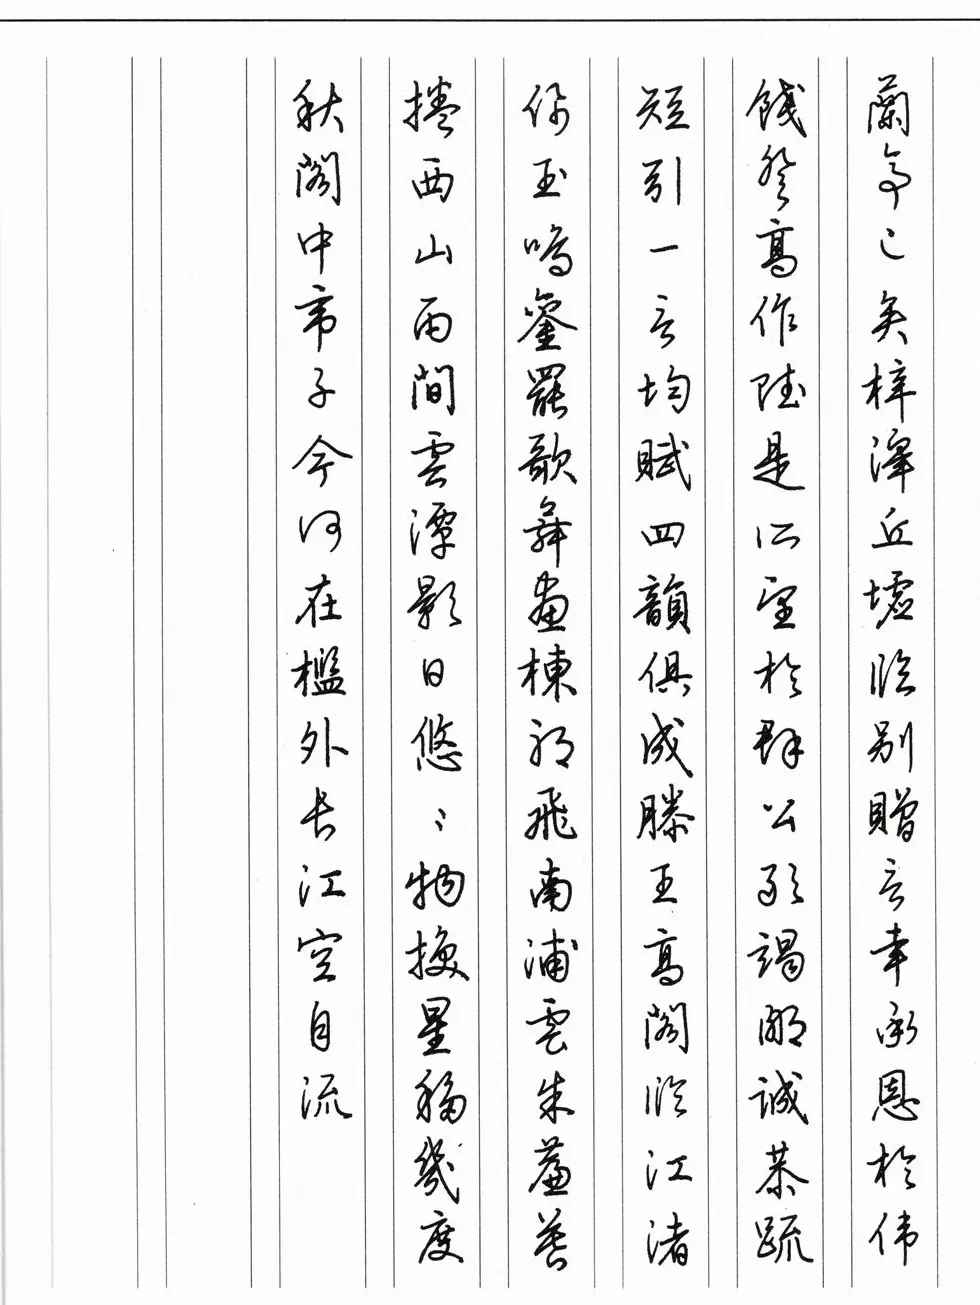 蘭亭已矣梓澤丘墟临别贈言幸承恩於伟
餞登高作賦是所望於群公敢竭鄙誠恭疏
短引一言均賦四韻俱成滕王高閣临江渚
佩玉鳴鑾罷歌舞畫棟朝飛南浦雲朱簾暮
捲西山雨間雲潭影日悠々物換星移幾度
秋閣中帝子今何在檻外长江空自流